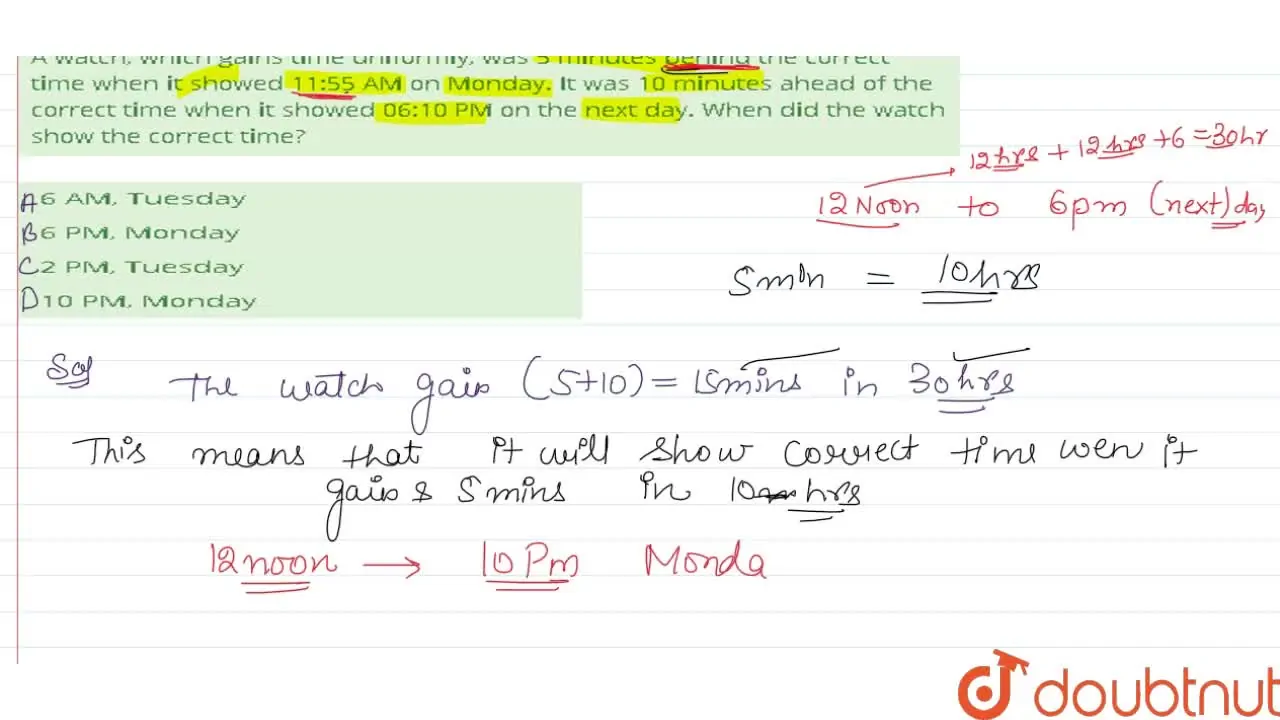 A watch, which gains time uniformly, was 5 minutes behind the correct
time when it showed 11:55 AM on Monday. It was 10 minutes ahead of the
correct time when it showed 06:10 PM on the next day. When did the watch
show the correct time?
12hrs + 12hrs + 6 = 30hr
12 Noon to 6pm (next) day
A 6 AM, Tuesday
B 6 PM, Monday
C 2 PM, Tuesday
D 10 PM, Monday
5min = 10hrs
Sol The watch gais (5+10) = 15mins in 30hrs
This means that it will show correct time wen it
gais 5mins in 10 hrs
12noon → 10Pm Monda
doubtnut